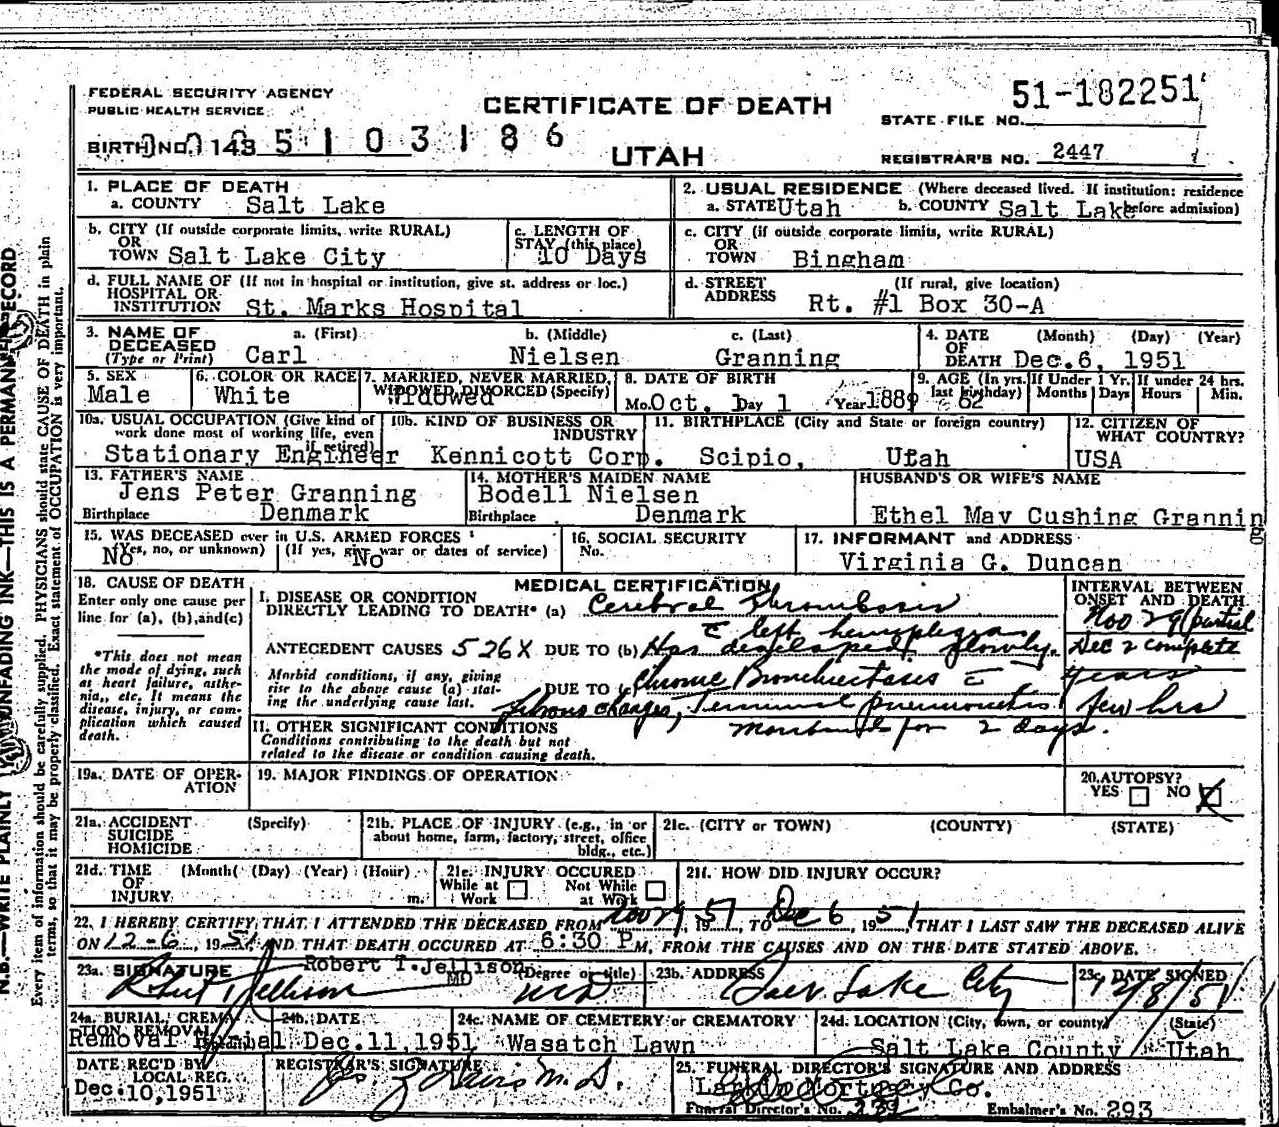 FEDERAL SECURITY AGENCY
PUBLIC HEALTH SERVICE
CERTIFICATE OF DEATH
51-182251
STATE FILE NO.
BIRTH NO. 143 5 1 0 3 1 8 6
UTAH
REGISTRAR'S NO. 2447
1. PLACE OF DEATH
a. COUNTY Salt Lake
2. USUAL RESIDENCE (Where deceased lived. If institution: residence before admission)
a. STATE Utah b. COUNTY Salt Lake
b. CITY (If outside corporate limits, write RURAL)
OR
TOWN Salt Lake City
c. LENGTH OF
STAY (this place)
10 Days
c. CITY (if outside corporate limits, write RURAL)
OR
TOWN Bingham
d. FULL NAME OF (If not in hospital or institution, give st. address or loc.)
HOSPITAL OR
INSTITUTION St. Marks Hospital
d. STREET (If rural, give location)
ADDRESS Rt. #1 Box 30-A
3. NAME OF
DECEASED
(Type or Print)
a. (First) b. (Middle) c. (Last)
Carl Nielsen Granning
4. DATE (Month) (Day) (Year)
OF
DEATH Dec. 6, 1951
5. SEX
Male
6. COLOR OR RACE
White
7. MARRIED, NEVER MARRIED,
WIDOWED, DIVORCED (Specify)
Widowed
8. DATE OF BIRTH
Mo. Oct. Day 1 Year 1889
9. AGE (In yrs. last birthday) 62
If Under 1 Yr. Months Days
If under 24 hrs. Hours Min.
10a. USUAL OCCUPATION (Give kind of
work done most of working life, even
if retired)
Stationary Engineer
10b. KIND OF BUSINESS OR
INDUSTRY
Kennicott Corp.
11. BIRTHPLACE (City and State or foreign country)
Scipio, Utah
12. CITIZEN OF
WHAT COUNTRY?
USA
13. FATHER'S NAME
Jens Peter Granning
Birthplace Denmark
14. MOTHER'S MAIDEN NAME
Bodell Nielsen
Birthplace Denmark
HUSBAND'S OR WIFE'S NAME
Ethel May Cushing Granning
15. WAS DECEASED ever in U.S. ARMED FORCES
(Yes, no, or unknown) (If yes, give war or dates of service)
No No
16. SOCIAL SECURITY
No.
17. INFORMANT and ADDRESS
Virginia G. Duncan
18. CAUSE OF DEATH
Enter only one cause per
line for (a), (b), and (c)
*This does not mean
the mode of dying, such
as heart failure, asthe-
nia, etc. It means the
disease, injury, or com-
plication which caused
death.
MEDICAL CERTIFICATION
I. DISEASE OR CONDITION
DIRECTLY LEADING TO DEATH* (a) Cerebral Thrombosis
c̄ left hemiplegia
ANTECEDENT CAUSES 526X DUE TO (b) Has developed slowly.
Morbid conditions, if any, giving
rise to the above cause (a) stat-
ing the underlying cause last.
DUE TO (c) Chronic Bronchiectases c̄
fibrous changes, Terminal pneumonitis
II. OTHER SIGNIFICANT CONDITIONS
Conditions contributing to the death but not
related to the disease or condition causing death.
Moribund for 2 days.
INTERVAL BETWEEN
ONSET AND DEATH
Nov 29 (partial
Dec 2 complete
years
few hrs
19a. DATE OF OPER-
ATION
19. MAJOR FINDINGS OF OPERATION
20. AUTOPSY?
YES NO X
21a. ACCIDENT (Specify)
SUICIDE
HOMICIDE
21b. PLACE OF INJURY (e.g., in or
about home, farm, factory, street, office
bldg., etc.)
21c. (CITY or TOWN) (COUNTY) (STATE)
21d. TIME (Month) (Day) (Year) (Hour)
OF
INJURY m.
21e. INJURY OCCURED
While at Work Not While at Work
21f. HOW DID INJURY OCCUR?
22. I HEREBY CERTIFY THAT I ATTENDED THE DECEASED FROM Nov 29, 1951, TO Dec 6, 1951, THAT I LAST SAW THE DECEASED ALIVE
ON 12-6, 1951 AND THAT DEATH OCCURED AT 6:30 P M, FROM THE CAUSES AND ON THE DATE STATED ABOVE.
23a. SIGNATURE Robert T. Jellison MD (Degree or title)
Robert T Jellison MD
23b. ADDRESS
Salt Lake City
23c. DATE SIGNED
12/8/51
24a. BURIAL, CREMA-
TION REMOVAL
Removal Burial
24b. DATE
Dec. 11, 1951
24c. NAME OF CEMETERY or CREMATORY
Wasatch Lawn
24d. LOCATION (City, town, or county) (State)
Salt Lake County Utah
DATE REC'D BY
LOCAL REG.
Dec. 10, 1951
REGISTRAR'S SIGNATURE
M.D.
25. FUNERAL DIRECTOR'S SIGNATURE AND ADDRESS
Mortuary Co.
Funeral Director's No. 239 Embalmer's No. 293
N.B.—WRITE PLAINLY WITH UNFADING INK—THIS IS A PERMANENT RECORD
Every item of information should be carefully supplied. PHYSICIANS should state CAUSE OF DEATH in plain
terms, so that it may be properly classified. Exact statement of OCCUPATION is very important.